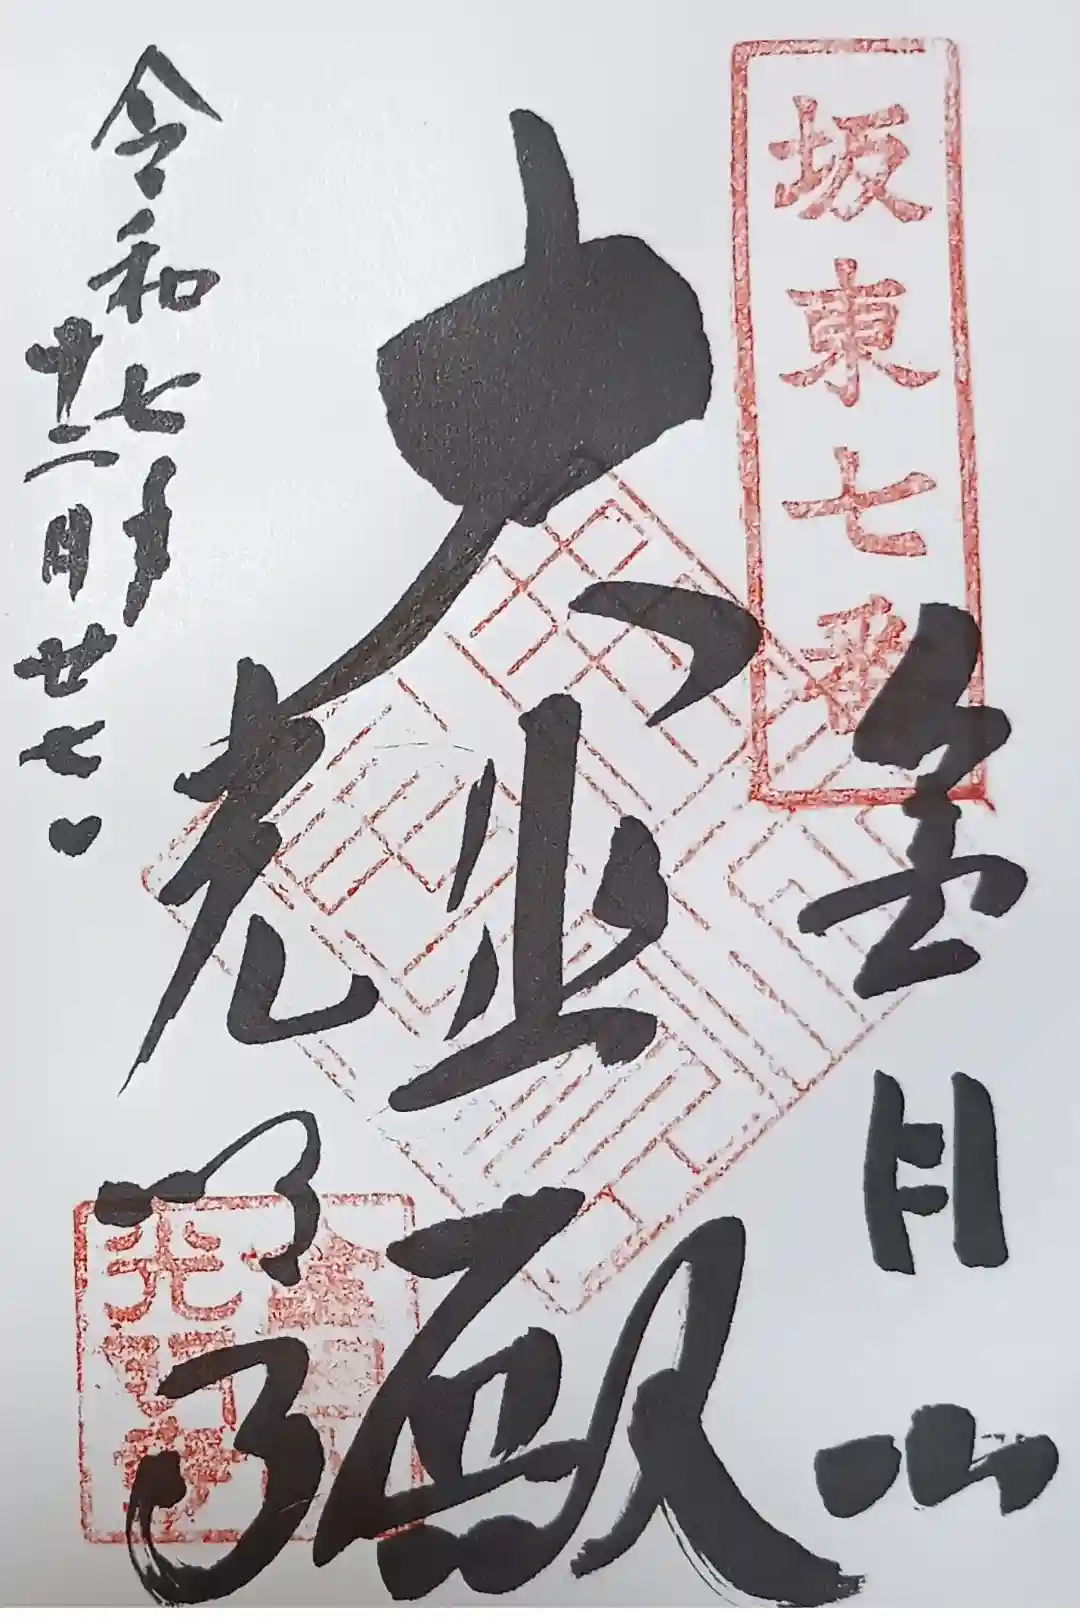 坂東七番
金目山
大悲殿
光明寺
令和七年
十二月廿七日